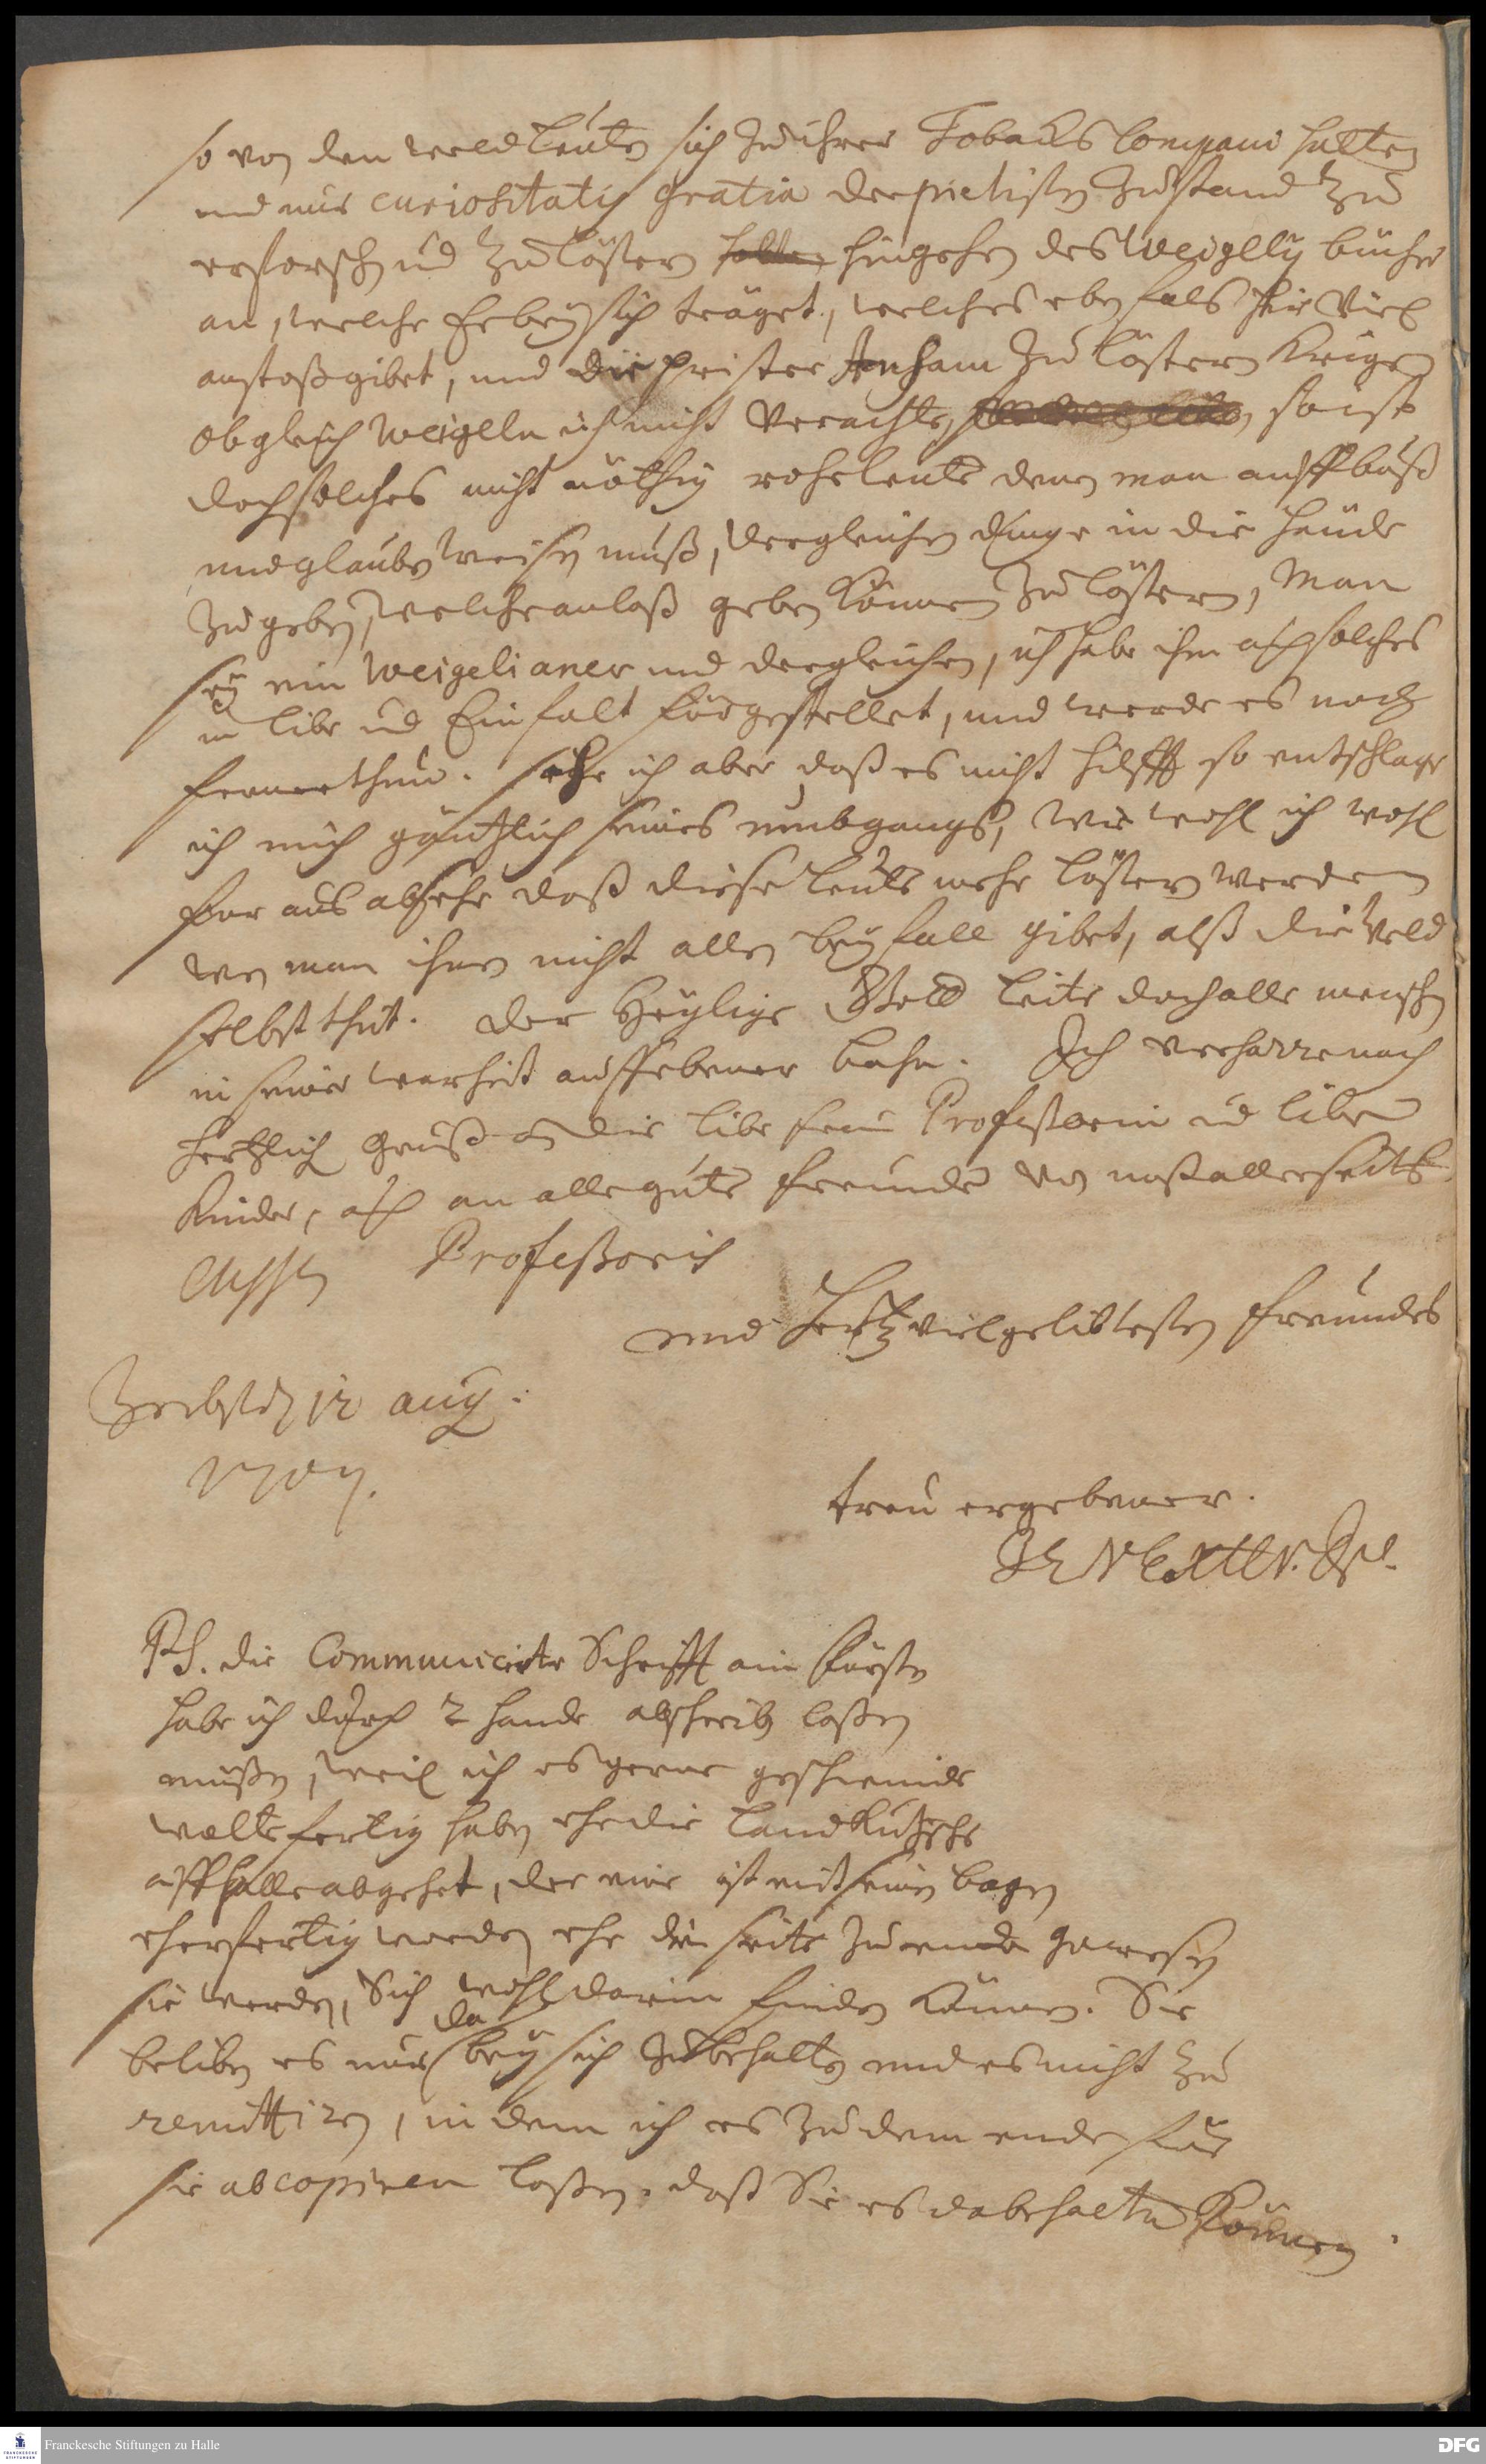 so von den weld leuten sich zu ihrer Tobacks Compani halten
und nur curiositatis gratia der pietisten Zustand zu
erforschen und zu lästern hingehen des Weigelij bücher
an, welche Er bey sich träget, welches eben fals hir viel
anstoß gibet, und die prister Anham zu lästern krigen
obgleich Weigeln ich nicht verachte, so ist
doch solches nicht nöthig rohe leute denen man auff buß
und glauben weisen muß, dergleichen dinge in die hände
zu geben, welche anlaß geben können zu lästern, Man
sey ein Weigelianer und dergleichen, ich habe ihm auch solches
in libe und Einfalt fürgestellet, und werde es noch
ferner thun. sehe ich aber daß es nicht hilfft so entschlage
ich mich gäntzlich seines umbgangs, wie wohl ich wohl
for aus absehe daß diese leute mehr lästern werden
wen man ihnen nicht allen beyfall gibet, alß die Weld
selbst thut. der Heylige leite doch alle menschen
in seine warheit auff ebener bahn. Ich verharre nach
hertzlich gruß an die libe frau Professorin und liben
Kinder, auch an alle gute freunde von allerseits
Professoris
und Hertz vielgelibtesten freundes
Zerbst den 12 aug.
treu ergebener.
PS. die Communicirte Schrifft am Fürsten
habe ich durch 2 hande abschreiben laßen
müßen, weil ich es gerne geschwinde
wolte fertig haben ehe die landkutsche
auff halle abgehet, der eine ist mit seinen bogen
eher fertig worden ehe die seite zu ende gewesen
sie werden, Sich wohl darin finden können. Sie
da
beliben es nur bey sich zu behalten und es nicht zu
remittiren, in dem ich es zu dem ende für
sie abcopiren laßen. daß Sie es da behalten können.
Franckesche Stiftungen zu Halle
DFG